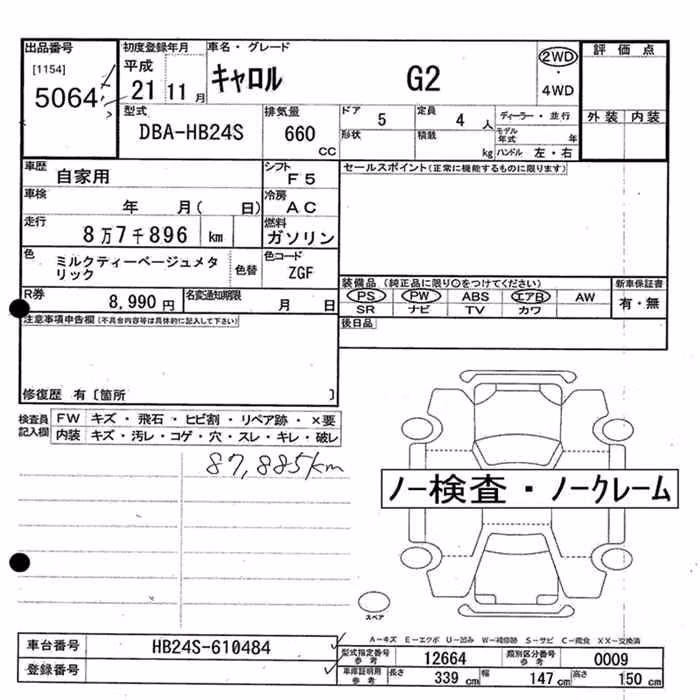 出品番号 初度登録年月 車名・グレード 評価点
[1154] 平成 2WD
5064 21 11月 キャロル G2 ・
4WD
型式 排気量 ドア 5 定員 4人 ディーラー・並行 外装 内装
DBA-HB24S 660cc 形状 積載 kg モデル年式 年
ハンドル 左・右
車歴 自家用 シフト F5 セールスポイント(正常に機能するものに限ります)
車検 年 月( 日) 冷房 AC
走行 8万7千896 km 燃料 ガソリン
色 ミルクティーベージュメタリック 色替 色コード ZGF
装備品(純正品に限り○をつけてください) 新車保証書
R券 8,990円 名変通知期限 月 日 PS PW ABS エアB AW 有・無
SR ナビ TV カワ
注意事項申告欄(不具合内容等は具体的に記入して下さい) 後日品
修復歴 有〔箇所 〕
検査員記入欄 FW キズ・飛石・ヒビ割・リペア跡・×要
内装 キズ・汚レ・コゲ・穴・スレ・キレ・破レ
87,885km
ノー検査・ノークレーム
スペア
A-キズ E-エクボ U-凹み W-補修跡 S-サビ C-腐食 XX-交換済
車台番号 HB24S-610484 型式指定番号 参考 12664 類別区分番号 参考 0009
登録番号 車庫証明用 参考 長さ 339cm 幅 147cm 高さ 150cm